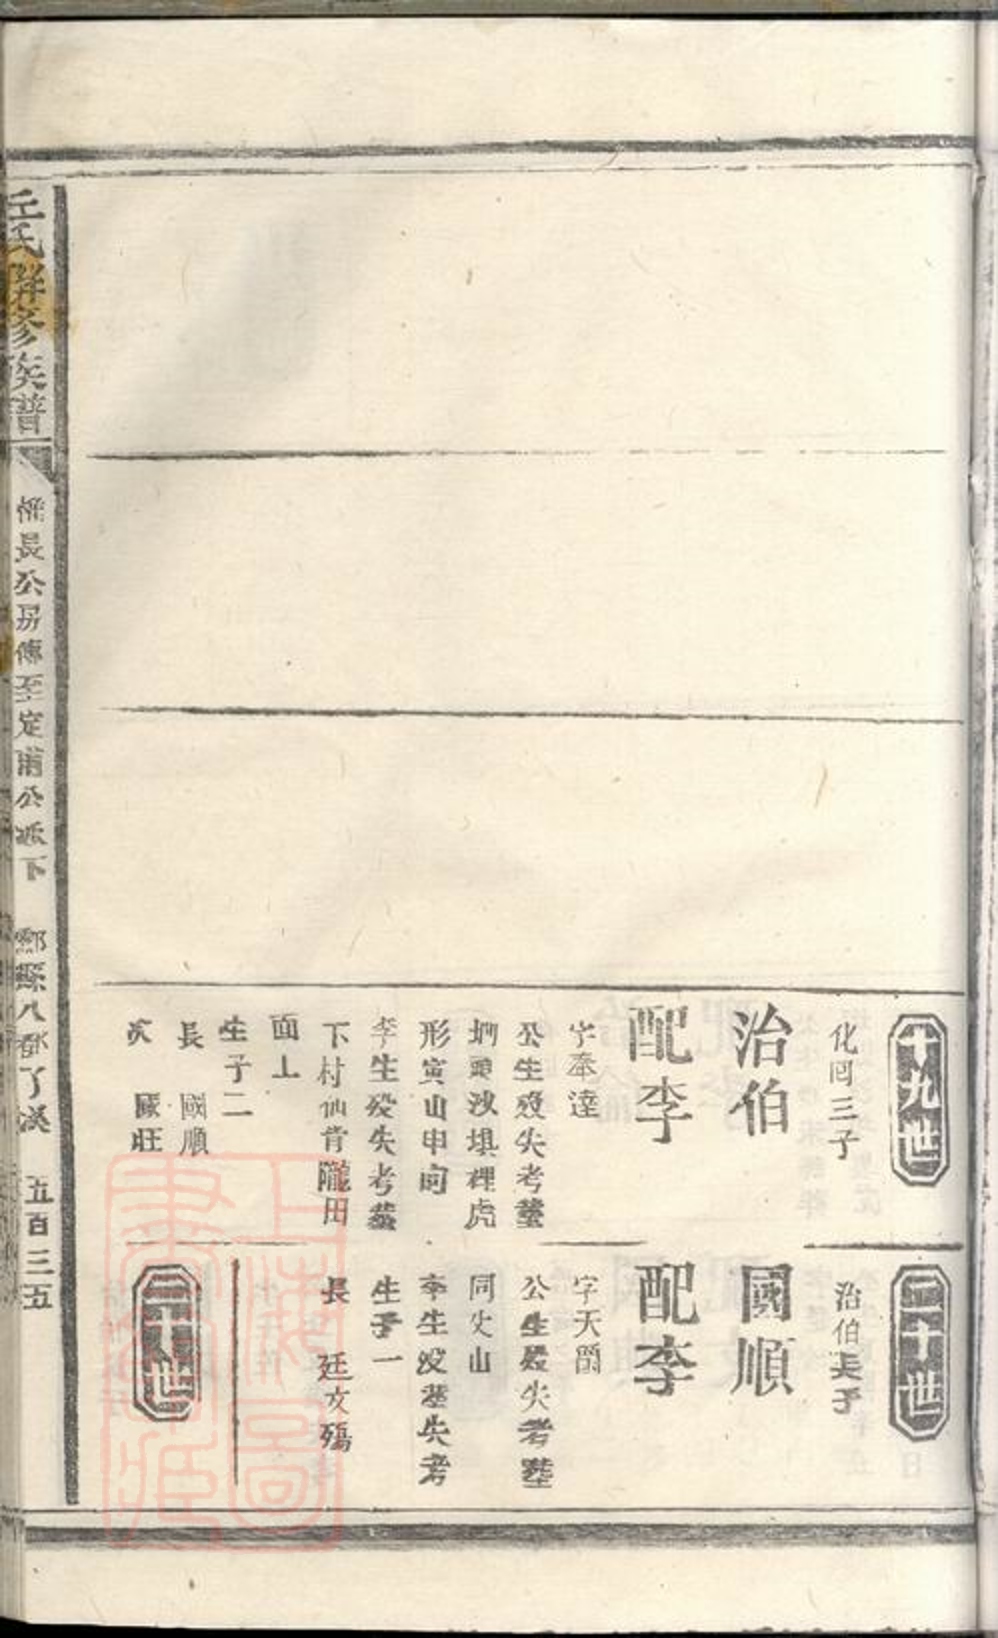 十九世
化岡三子
治伯
配李
字奉達
公生歿失考塟
坰頭汝塤裡虎
形寅山申向
李生歿失考塟
下村仙背隴田
面上
生子二
長 國順
次 國旺
二十世
治伯長子
國順
配李
字天爵
公生歿失考塟
同丈山
李生沒塟失考
生子一
長 廷文殤
二十世
丘氏聯修族譜
惟長公房傳至定甫公派下
鄠縣八都了溪
五百三五
上海圖書館